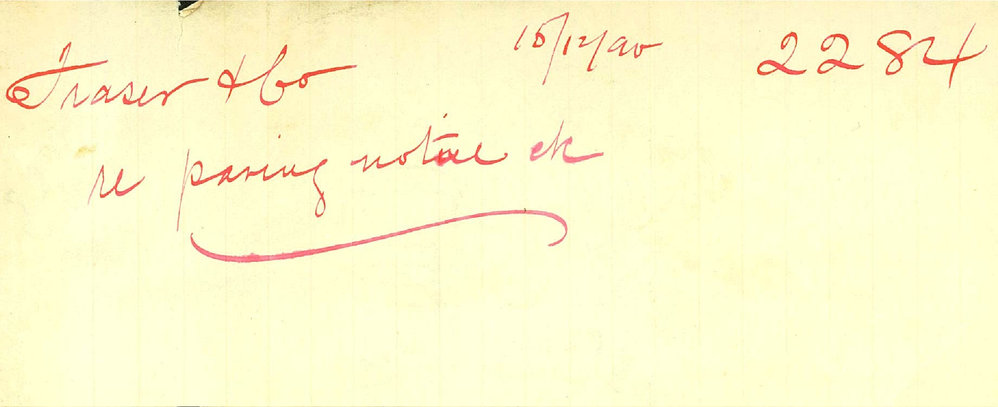 Fraser & Co 15/12/90 2284
re paving notice etc